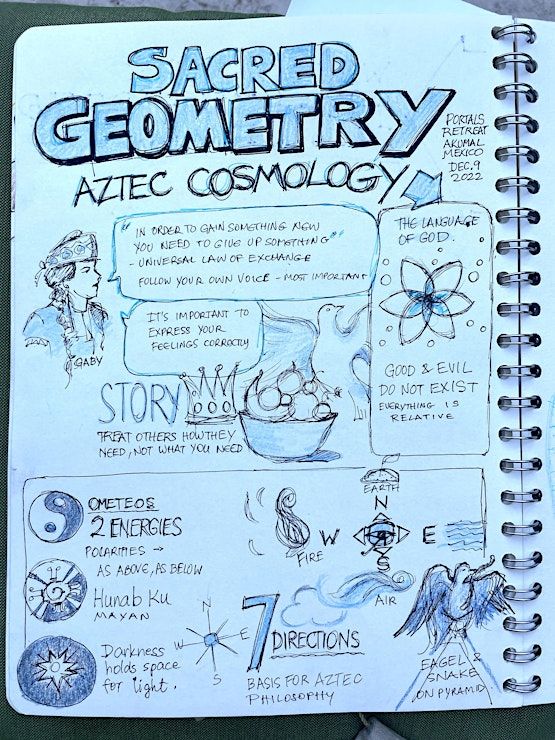 SACRED
GEOMETRY
AZTEC COSMOLOGY
PORTALS
RETREAT
AKUMAL
MEXICO
DEC. 9
2022
"IN ORDER TO GAIN SOMETHING NEW
YOU NEED TO GIVE UP SOMETHING"
- UNIVERSAL LAW OF EXCHANGE
FOLLOW YOUR OWN VOICE - MOST IMPORTANT
IT'S IMPORTANT TO
EXPRESS YOUR
FEELINGS CORRECTLY
GABY
THE LANGUAGE
OF GOD.
GOOD & EVIL
DO NOT EXIST
EVERYTHING IS
RELATIVE
STORY
TREAT OTHERS HOW THEY
NEED, NOT WHAT YOU NEED
OMETEOS
2 ENERGIES
POLARITIES →
AS ABOVE, AS BELOW
Hunab Ku
MAYAN
Darkness
holds space
for light.
EARTH
N
W
E
S
FIRE
AIR
N
E
S
7 DIRECTIONS
BASIS FOR AZTEC
PHILOSOPHY
EAGEL &
SNAKE
ON PYRAMID.